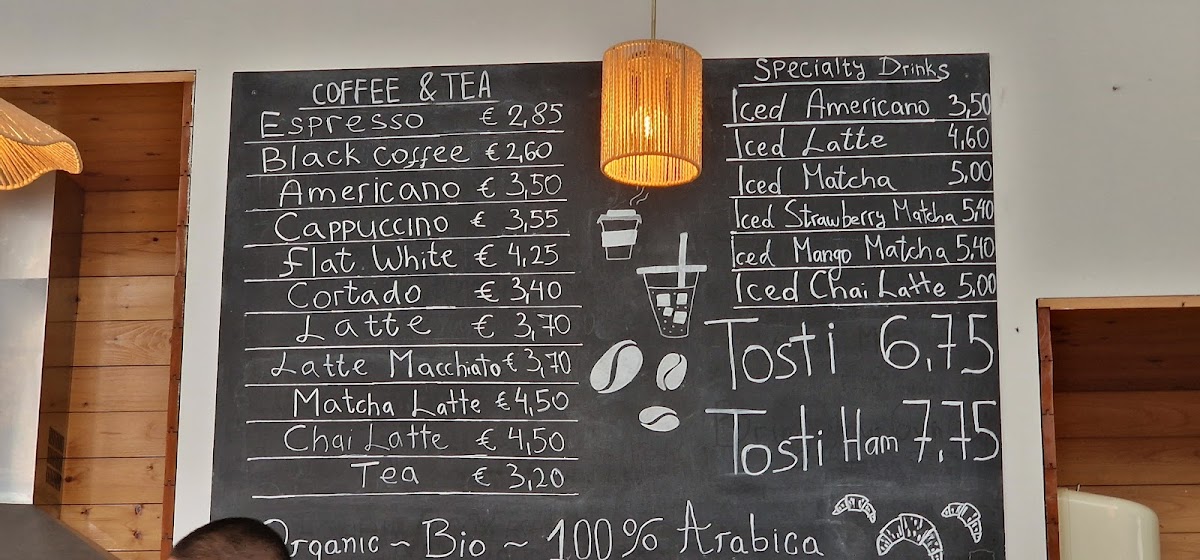 COFFEE & TEA
Espresso € 2,85
Black Coffee € 2,60
Americano € 3,50
Cappuccino € 3,55
Flat White € 4,25
Cortado € 3,40
Latte € 3,70
Latte Macchiato € 3,70
Matcha Latte € 4,50
Chai Latte € 4,50
Tea € 3,20
Specialty Drinks
Iced Americano 3,50
Iced Latte 4,60
Iced Matcha 5,00
Iced Strawberry Matcha 5,40
Iced Mango Matcha 5,40
Iced Chai Latte 5,00
Tosti 6,75
Tosti Ham 7,75
Organic ~ Bio ~ 100% Arabica